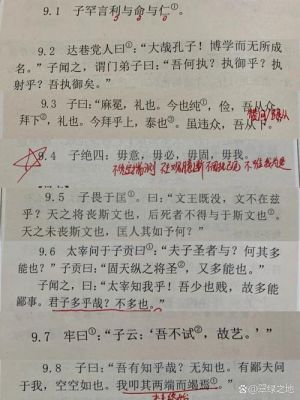 9.1 子罕言利与命与仁①。
9.2 达巷党人曰①：“大哉孔子！博学而无所成
名。”子闻之，谓门弟子曰：“吾何执？执御乎？执
射乎？吾执御矣。”
9.3 子曰：“麻冕，礼也。今也纯①，俭，吾从众。
拜下②，礼也。今拜乎上，泰也③。虽违众，吾从下。”
9.4 子绝四：毋意，毋必，毋固，毋我。
9.5 子畏于匡①。曰：“文王既没，文不在兹
乎？天之将丧斯文也，后死者不得与于斯文也②。
天之未丧斯文也，匡人其如予何？”
9.6 太宰问于子贡曰①：“夫子圣者与？何其多
能也？”子贡曰：“固天纵之将圣②，又多能也。”
子闻之，曰：“太宰知我乎！吾少也贱，故多能
鄙事。君子多乎哉？不多也。”
9.7 牢曰①：“子云：‘吾不试②，故艺。’”
9.8 子曰：“吾有知乎哉？无知也。有鄙夫问
于我，空空如也。我叩其两端而竭焉①。”
@翠绿之地